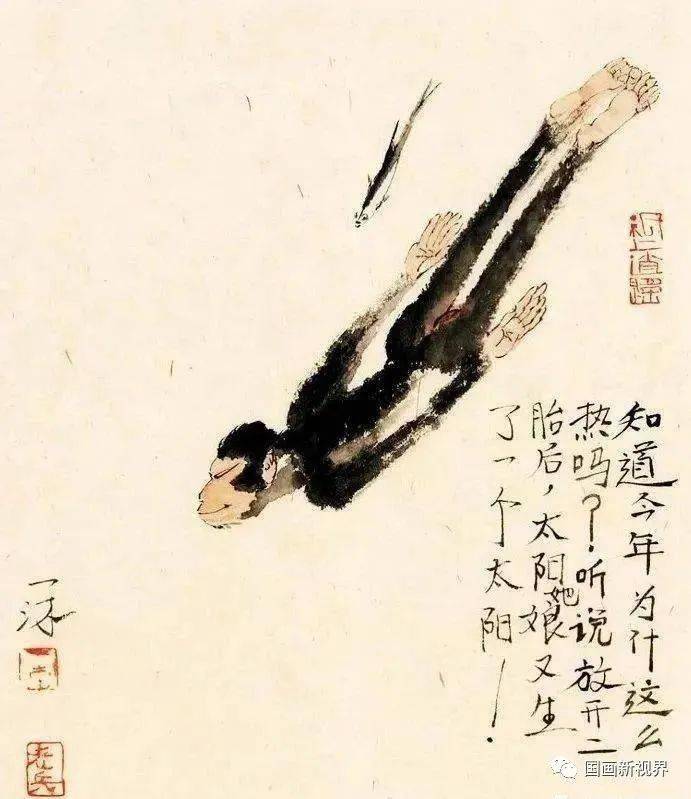 知道今年为什这么
热吗？听说放开二
胎后，太阳她娘又生
了一个太阳！
国画新视界